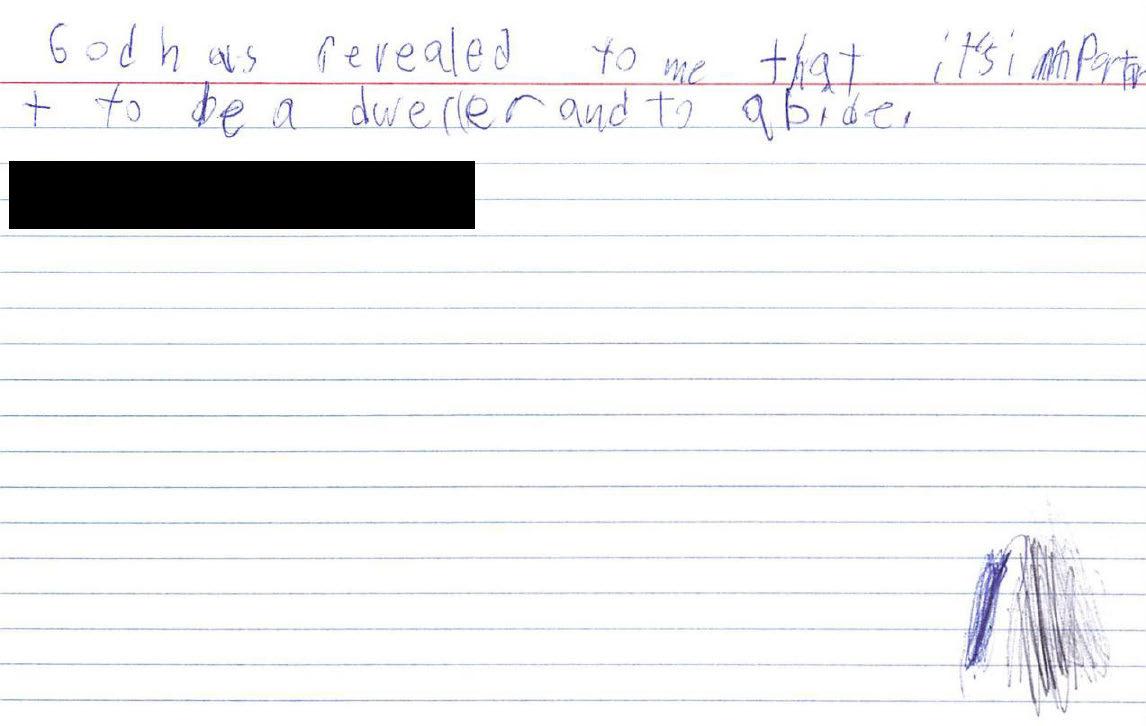 God has revealed to me that it's importan
t to be a dweller and to abide.